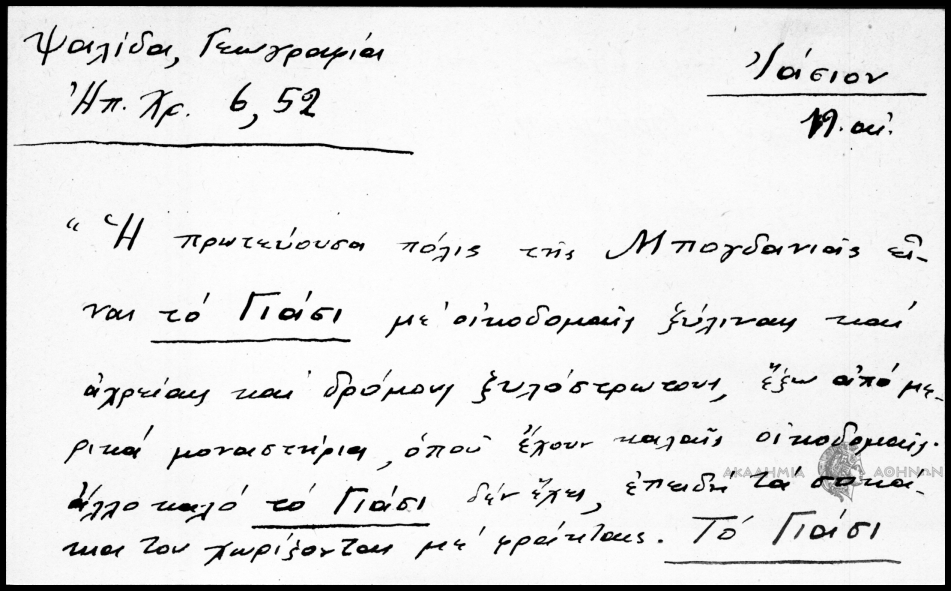 Ψαλίδα, Γεωγραφία
Ἠπ. Χρ. 6, 52
Ἰάσιον
19. αἰ.
“Ἡ πρωτεύουσα πόλις τῆς Μπογδανιᾶς εἶ-
ναι τό Γιάσι μέ οἰκοδομαῖς ξύλιναις καί
ἀχρείαις καί δρόμους ξυλόστρωτους, ἔξω ἀπό με-
ρικά μοναστήρια, ὁποῦ ἔχουν καλαῖς οἰκοδομαῖς.
ἄλλο καλό τό Γιάσι δέν ἔχει, ἐπειδή τά σοκά-
κια του χωρίζονται μέ φράκταις. Τό Γιάσι
ΑΚΑΔΗΜΙΑ ΑΘΗΝΩΝ